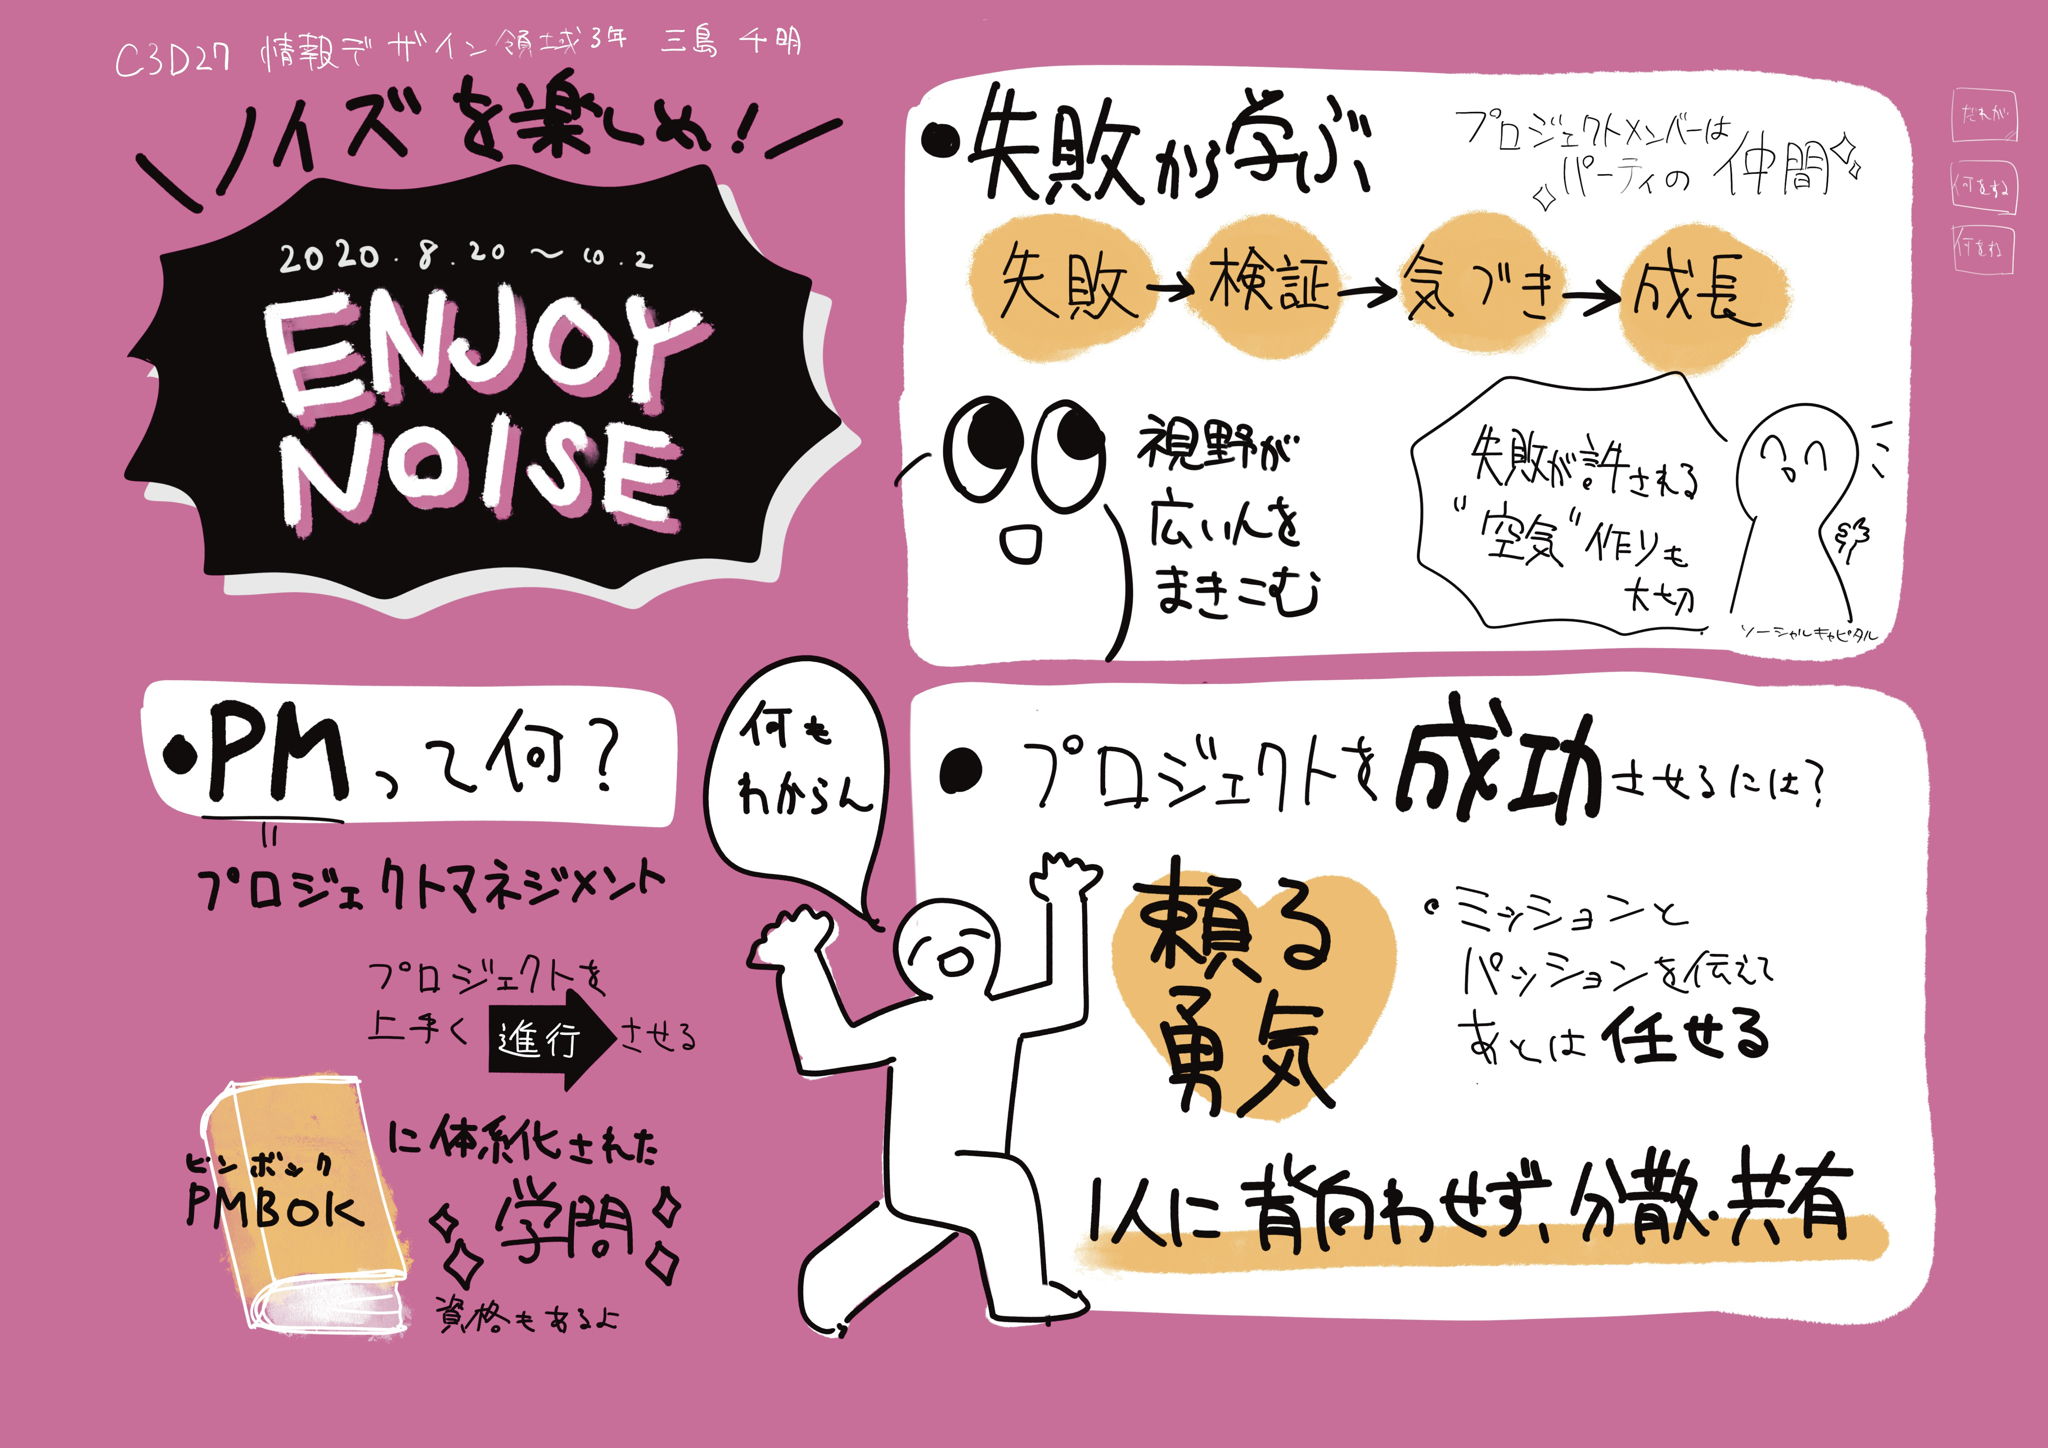 C3D27 情報デザイン領域3年 三島 千明
ノイズを楽しめ!
2020.8.20〜10.2
ENJOY
NOISE
●PMって何?
プロジェクトマネジメント
プロジェクトを
上手く進行させる
ピンボック
PMBOK
に体系化された
学問
資格もあるよ
●失敗から学ぶ
プロジェクトメンバーは
パーティの仲間
失敗→検証→気づき→成長
視野が
広い人を
まきこむ
失敗が許される
"空気"作りも
大切
ソーシャルキャピタル
何も
わからん
●プロジェクトを成功させるには?
頼る
勇気
•ミッションと
パッションを伝えて
あとは任せる
1人に背向わせず、分散・共有
だれが
何をする